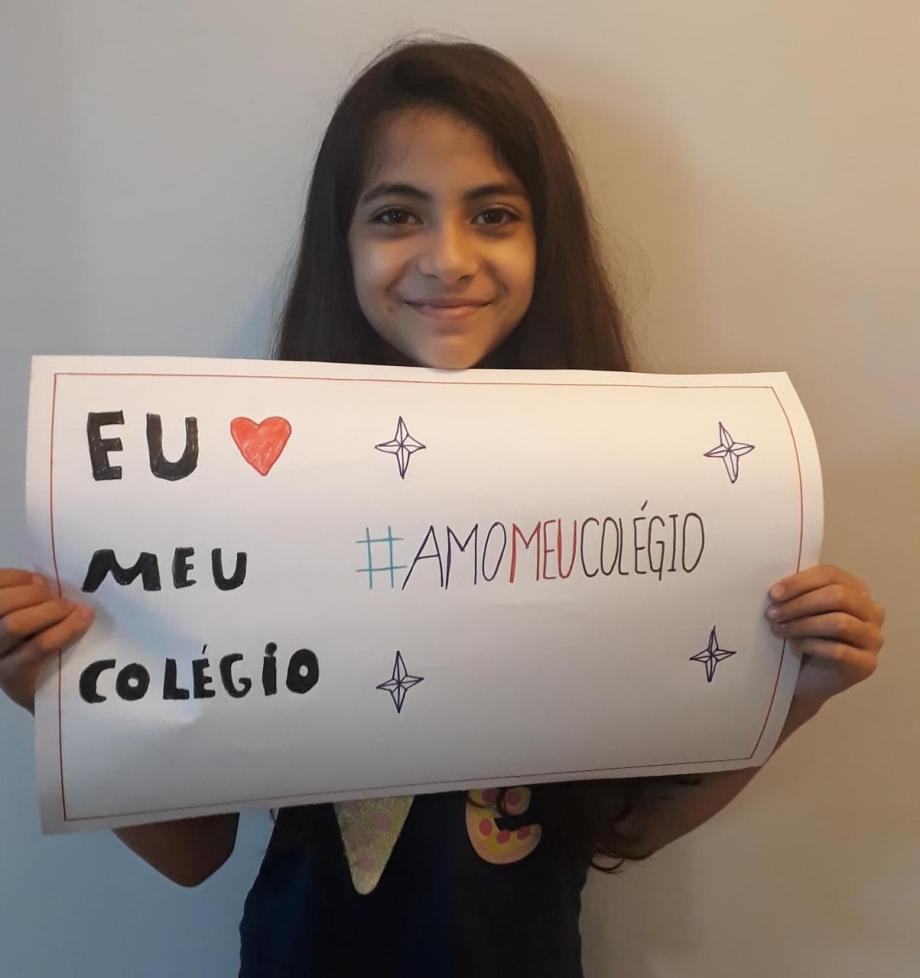 EU ❤
MEU
COLÉGIO
#AMOMEUCOLÉGIO